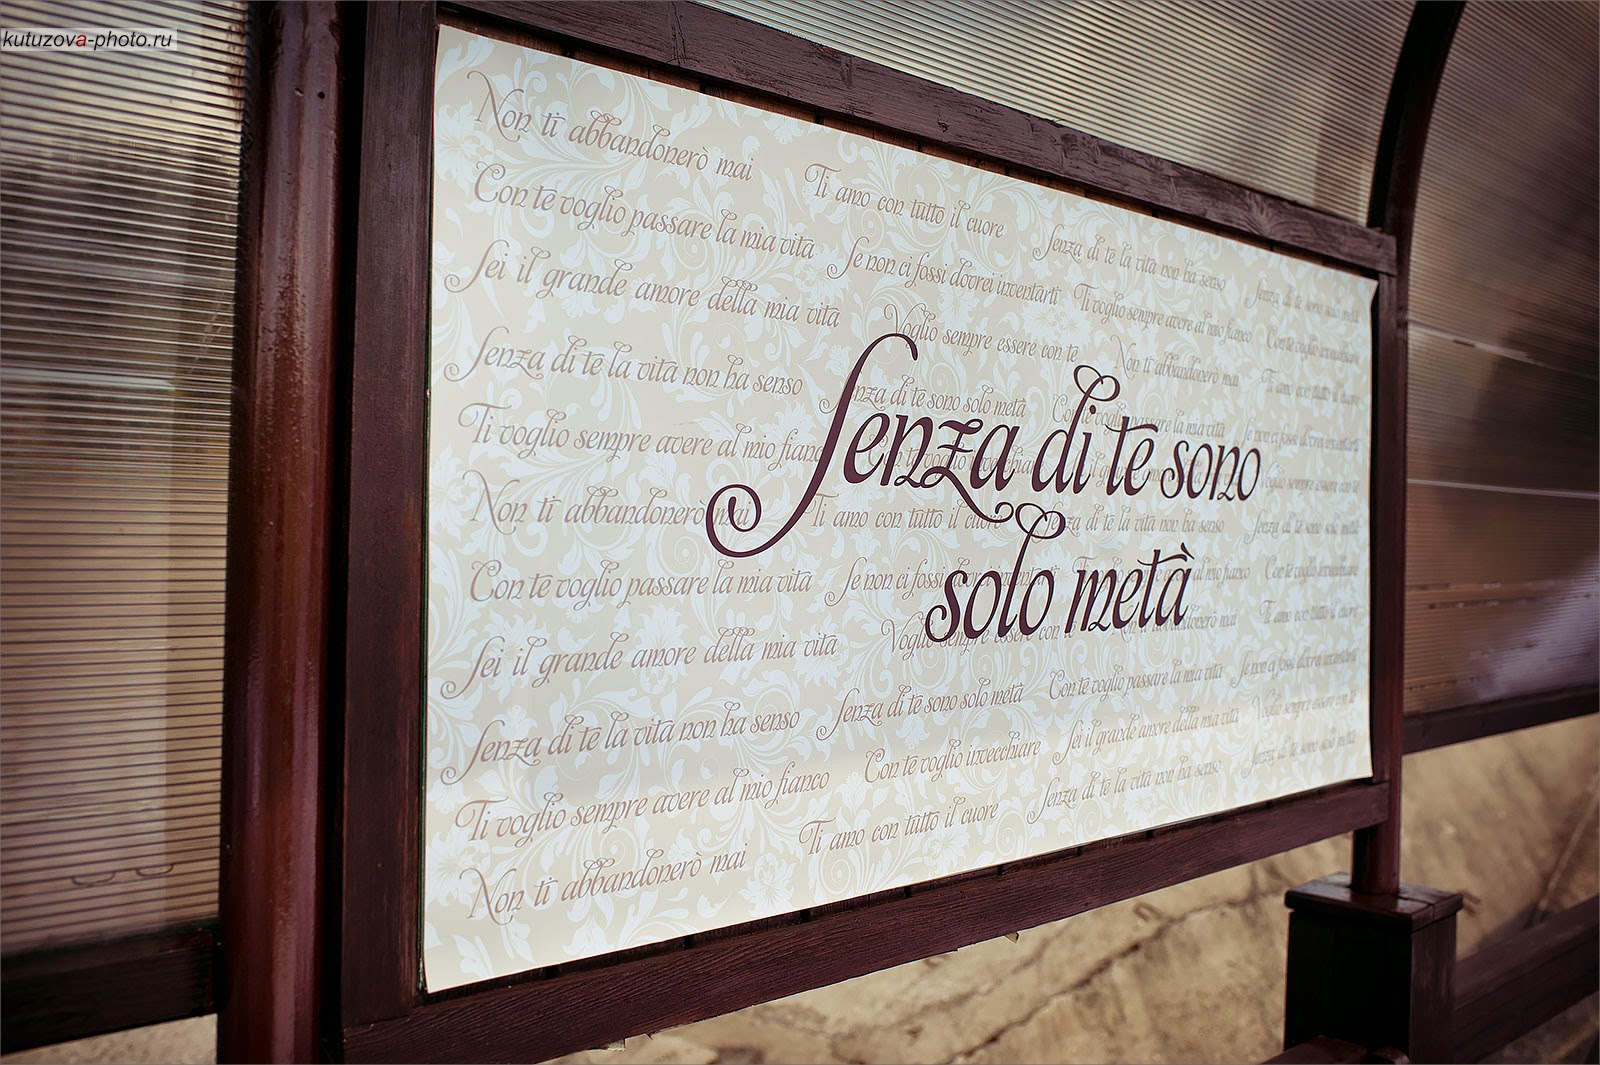 kutuzova-photo.ru
Non ti abbandonerò mai
Ti amo con tutto il cuore
Senza di te la vita non ha senso
Senza di te sono solo metà
Con te voglio passare la mia vita
Se non ci fossi dovrei inventarti
Ti voglio sempre avere al mio fianco
Con te voglio invecchiare
Sei il grande amore della mia vita
Voglio sempre essere con te
Non ti abbandonerò mai
Ti amo con tutto il cuore
Senza di te la vita non ha senso
Senza di te sono solo metà
Con te voglio passare la mia vita
Se non ci fossi dovrei inventarti
Senza di te sono
solo metà
Ti voglio sempre avere al mio
Voglio sempre essere con te
Non ti abbandonerò mai
Ti amo con tutto il cuore
Senza di te la vita non ha senso
Senza di te sono solo metà
Con te voglio passare la mia vita
Se non ci fossi
al mio fianco
Con te voglio invecchiare
Sei il grande amore della mia vita
Voglio sempre essere con te
Non ti abbandonerò mai
Ti amo con tutto il cuore
Senza di te la vita non ha senso
Senza di te sono solo metà
Con te voglio passare la mia vita
Se non ci fossi dovrei inventarti
Ti voglio sempre avere al mio fianco
Con te voglio invecchiare
Sei il grande amore della mia vita
Voglio sempre essere con te
Non ti abbandonerò mai
Ti amo con tutto il cuore
Senza di te la vita non ha senso
Senza di te sono solo metà